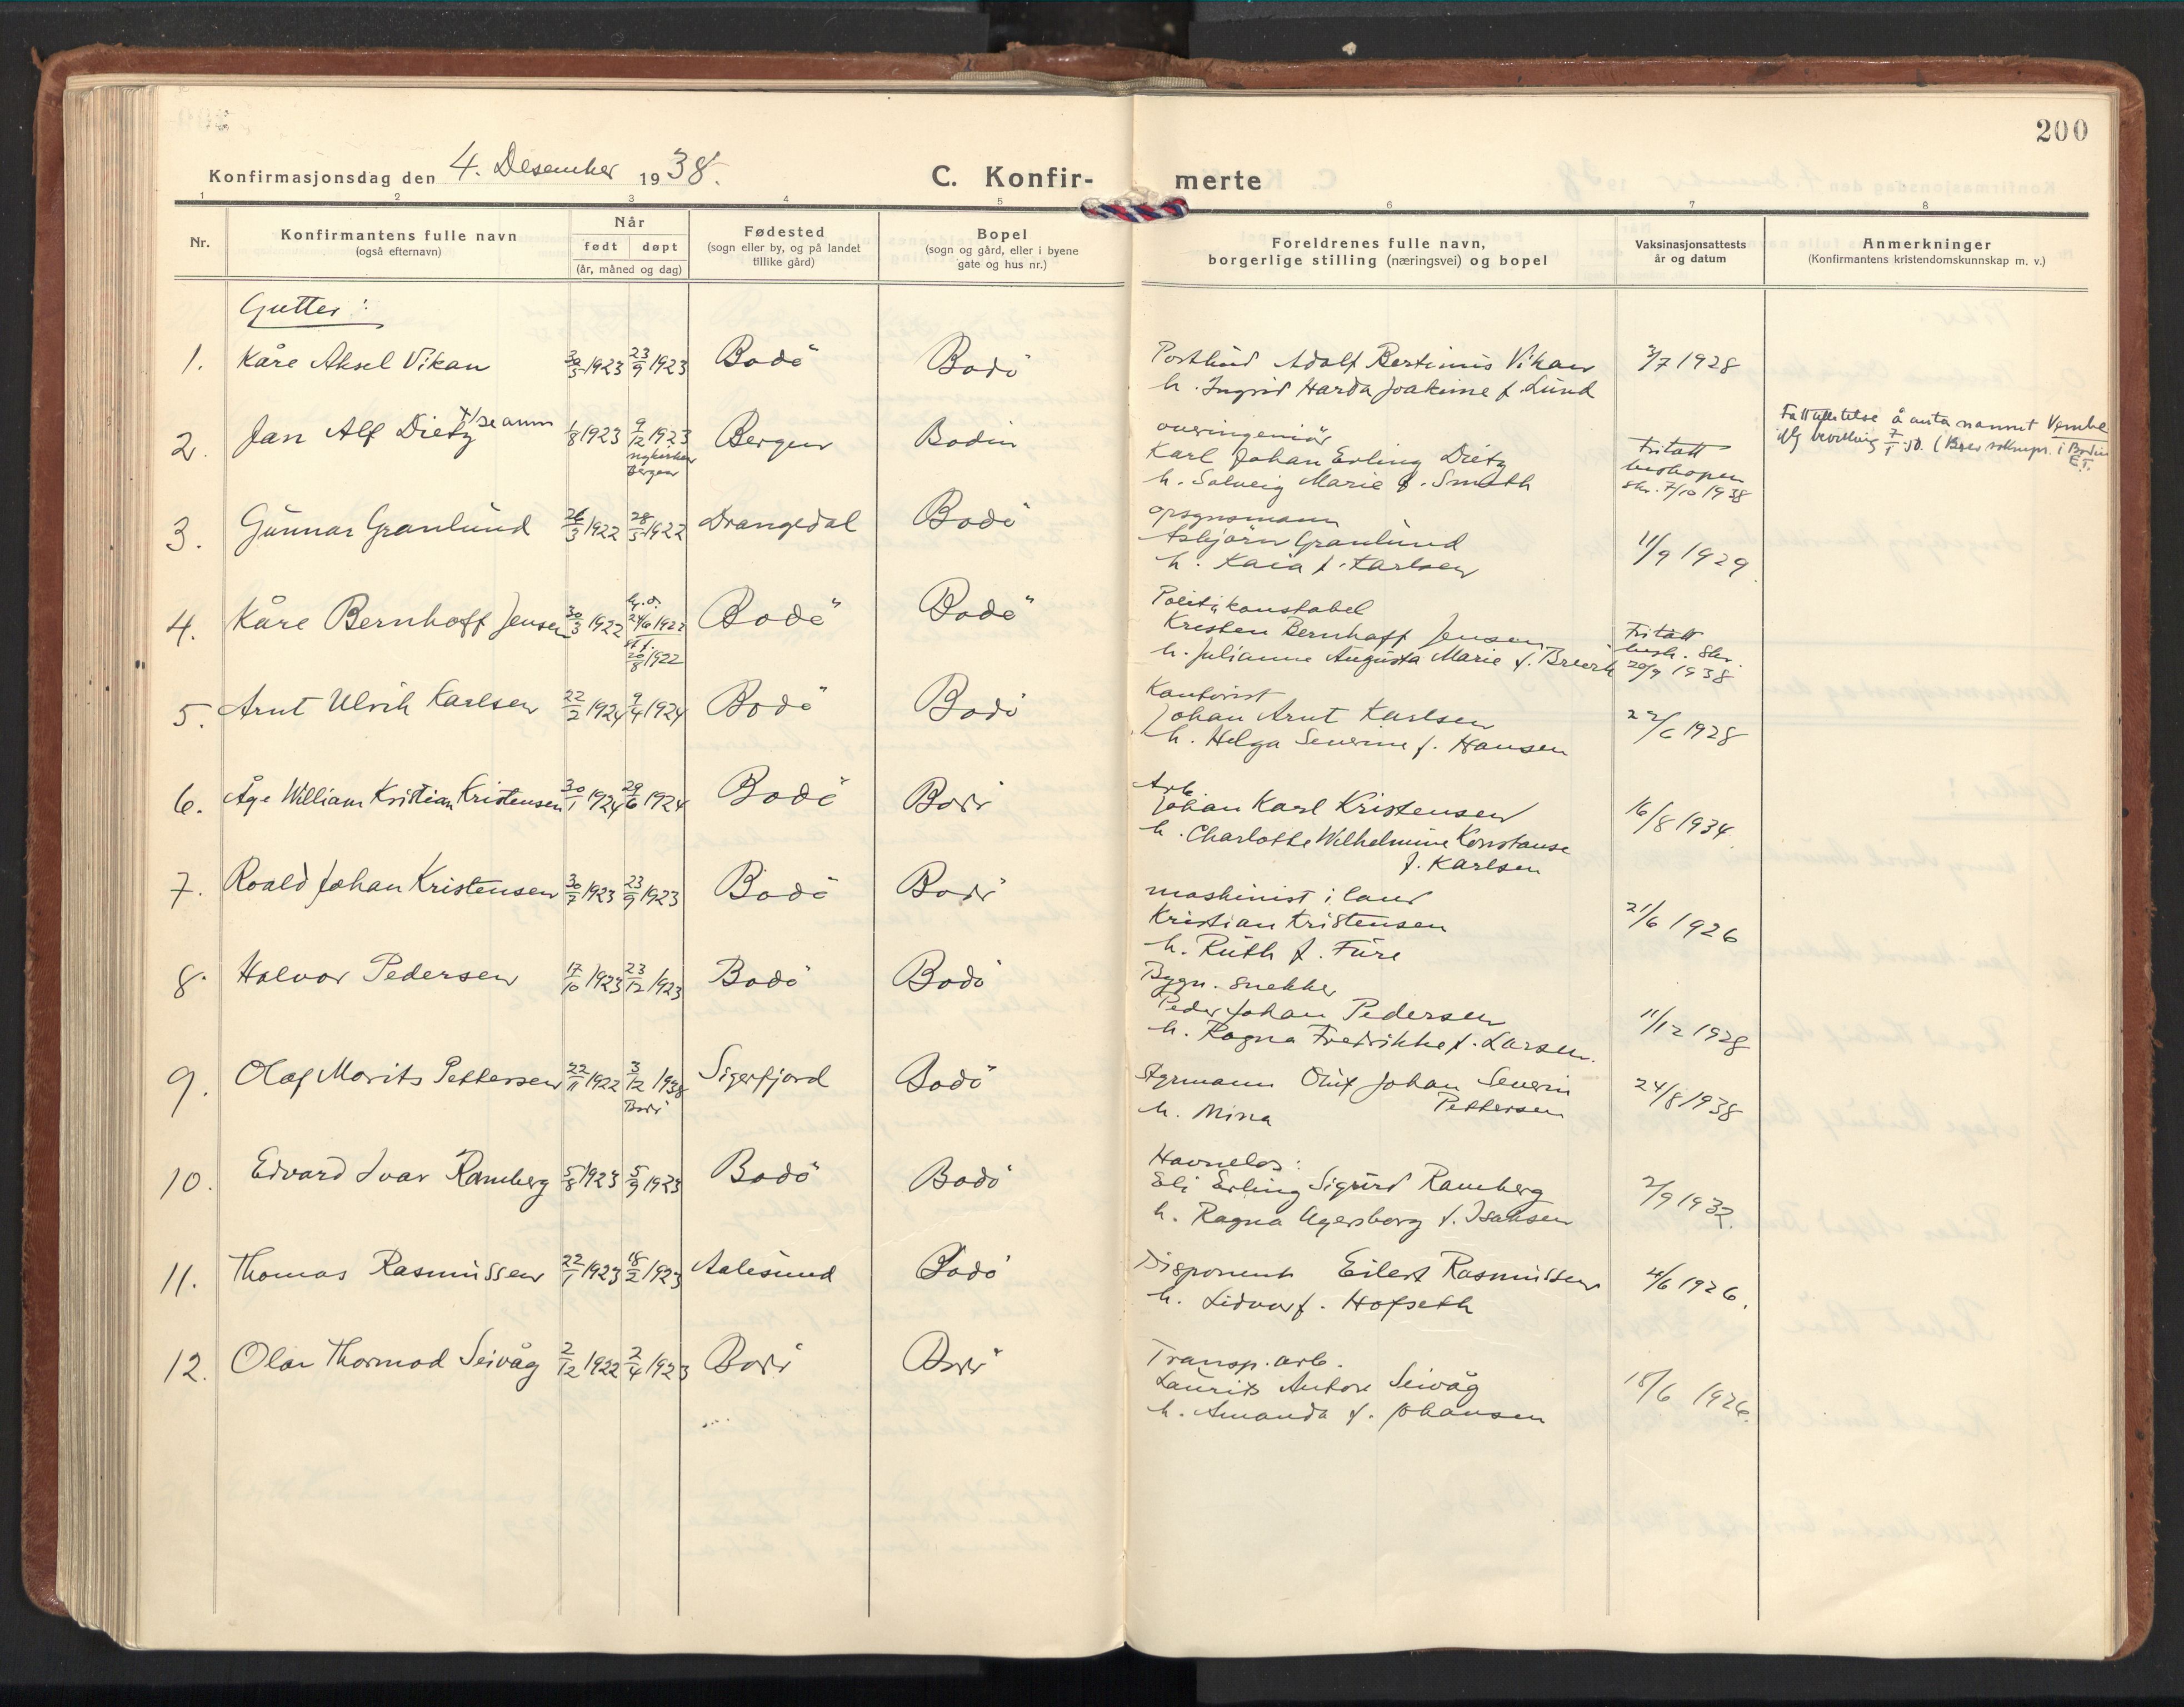 200
Konfirmasjonsdag den 4. Desember 1938.
C. Konfir- merte
1 2 3 4 5 6 7 8
Nr.
Konfirmantens fulle navn
(også efternavn)
Når
født døpt
(år, måned og dag)
Fødested
(sogn eller by, og på landet
tillike gård)
Bopel
(sogn og gård, eller i byene
gate og hus nr.)
Foreldrenes fulle navn,
borgerlige stilling (næringsvei) og bopel
Vaksinasjonsattests
år og datum
Anmerkninger
(Konfirmantens kristendomskunnskap m. v.)
Gutter:
1. Kåre Aksel Vikan 30/5 1923 23/9 1923 Bodö Bodö
Postbud Adolf Bertinius Vikan 3/7 1928
h. Ingrid Harda Joakime f. Lund
2. Jan Alf Dietz x/se anm 1/8 1923 9/12 1923 Nykirken Bergen Bergen Bodin
overingeniör
Karl Johan Erling Dietz
h. Solveig Marie f. Smith
Fritatt
biskopen
skr. 7/10 1938
Fått tillatelse å anta navnet
iflg bevilling 7/1 50. (Brev soknepr. i Bodin
E.T.
3. Gunnar Granlund 26/3 1922 28/5 1922 Drangedal Bodö
opsynsmann
Asbjörn Granlund
h. Kaia f. Karlsen
11/9 1929
4. Kåre Bernhoff Jensen 30/3 1922 hj.d. 24/6 1922 st.f. 20/8 1922 Bodö Bodö
Politikonstabel
Kresten Bernhoff Jensen
h. Julianne Augusta Marie f.
Fritatt
bisk. skr.
20/9 1938
5. Arnt Ulrik Karlsen 22/2 1924 9/4 1924 Bodö Bodö
Kontorist
Johan Arnt Karlsen
h. Helga Severine f. Hansen
22/6 1928
6. Åge William Kristian Kristensen 30/1 1924 29/6 1924 Bodö Bodö
Arb.
Johan Karl Kristensen
h. Charlotte Wilhelmine Konstanse
f. Karlsen
16/8 1934
7. Roald Johan Kristensen 30/7 1923 23/9 1923 Bodö Bodö
maskinist i land
Kristian Kristensen
h. Ruth f. Fure
21/6 1926
8. Halvor Pedersen 17/10 1923 23/12 1923 Bodö Bodö
Bygn. snekker
Peder Johan Pedersen
h. Ragna Fredrikke f. Larsen.
11/12 1928
9. Olaf Morits Pettersen 22/11 1922 3/12 1938 Bodö Sigerfjord Bodö
Styrmann Oluf Johan Severin
Pettersen
h. Mina
24/8 1938
10. Edvard Ivar Ramberg 5/8 1923 5/9 1923 Bodö Bodö
Havnelos:
Eli Erling Sigurd Ramberg
h. Ragna Agersborg f. Isaksen
2/9 1932.
11. Thomas Rasmussen 22/1 1923 18/2 1923 Aalesund Bodö
Disponent Eilert Rasmussen
h. Lidvor f. Hofseth
4/6 1926.
12. Olav Thormod Seivåg 2/12 1922 2/4 1923 Bodö Bodö
Transp. arb.
Laurits Anton Seivåg
h. Amanda f. Johansen
18/6 1926.